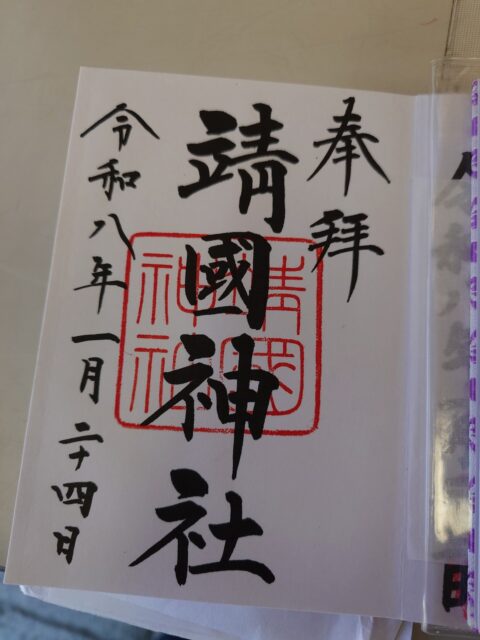 奉拝
靖國神社
令和八年一月二十四日
靖國
神社